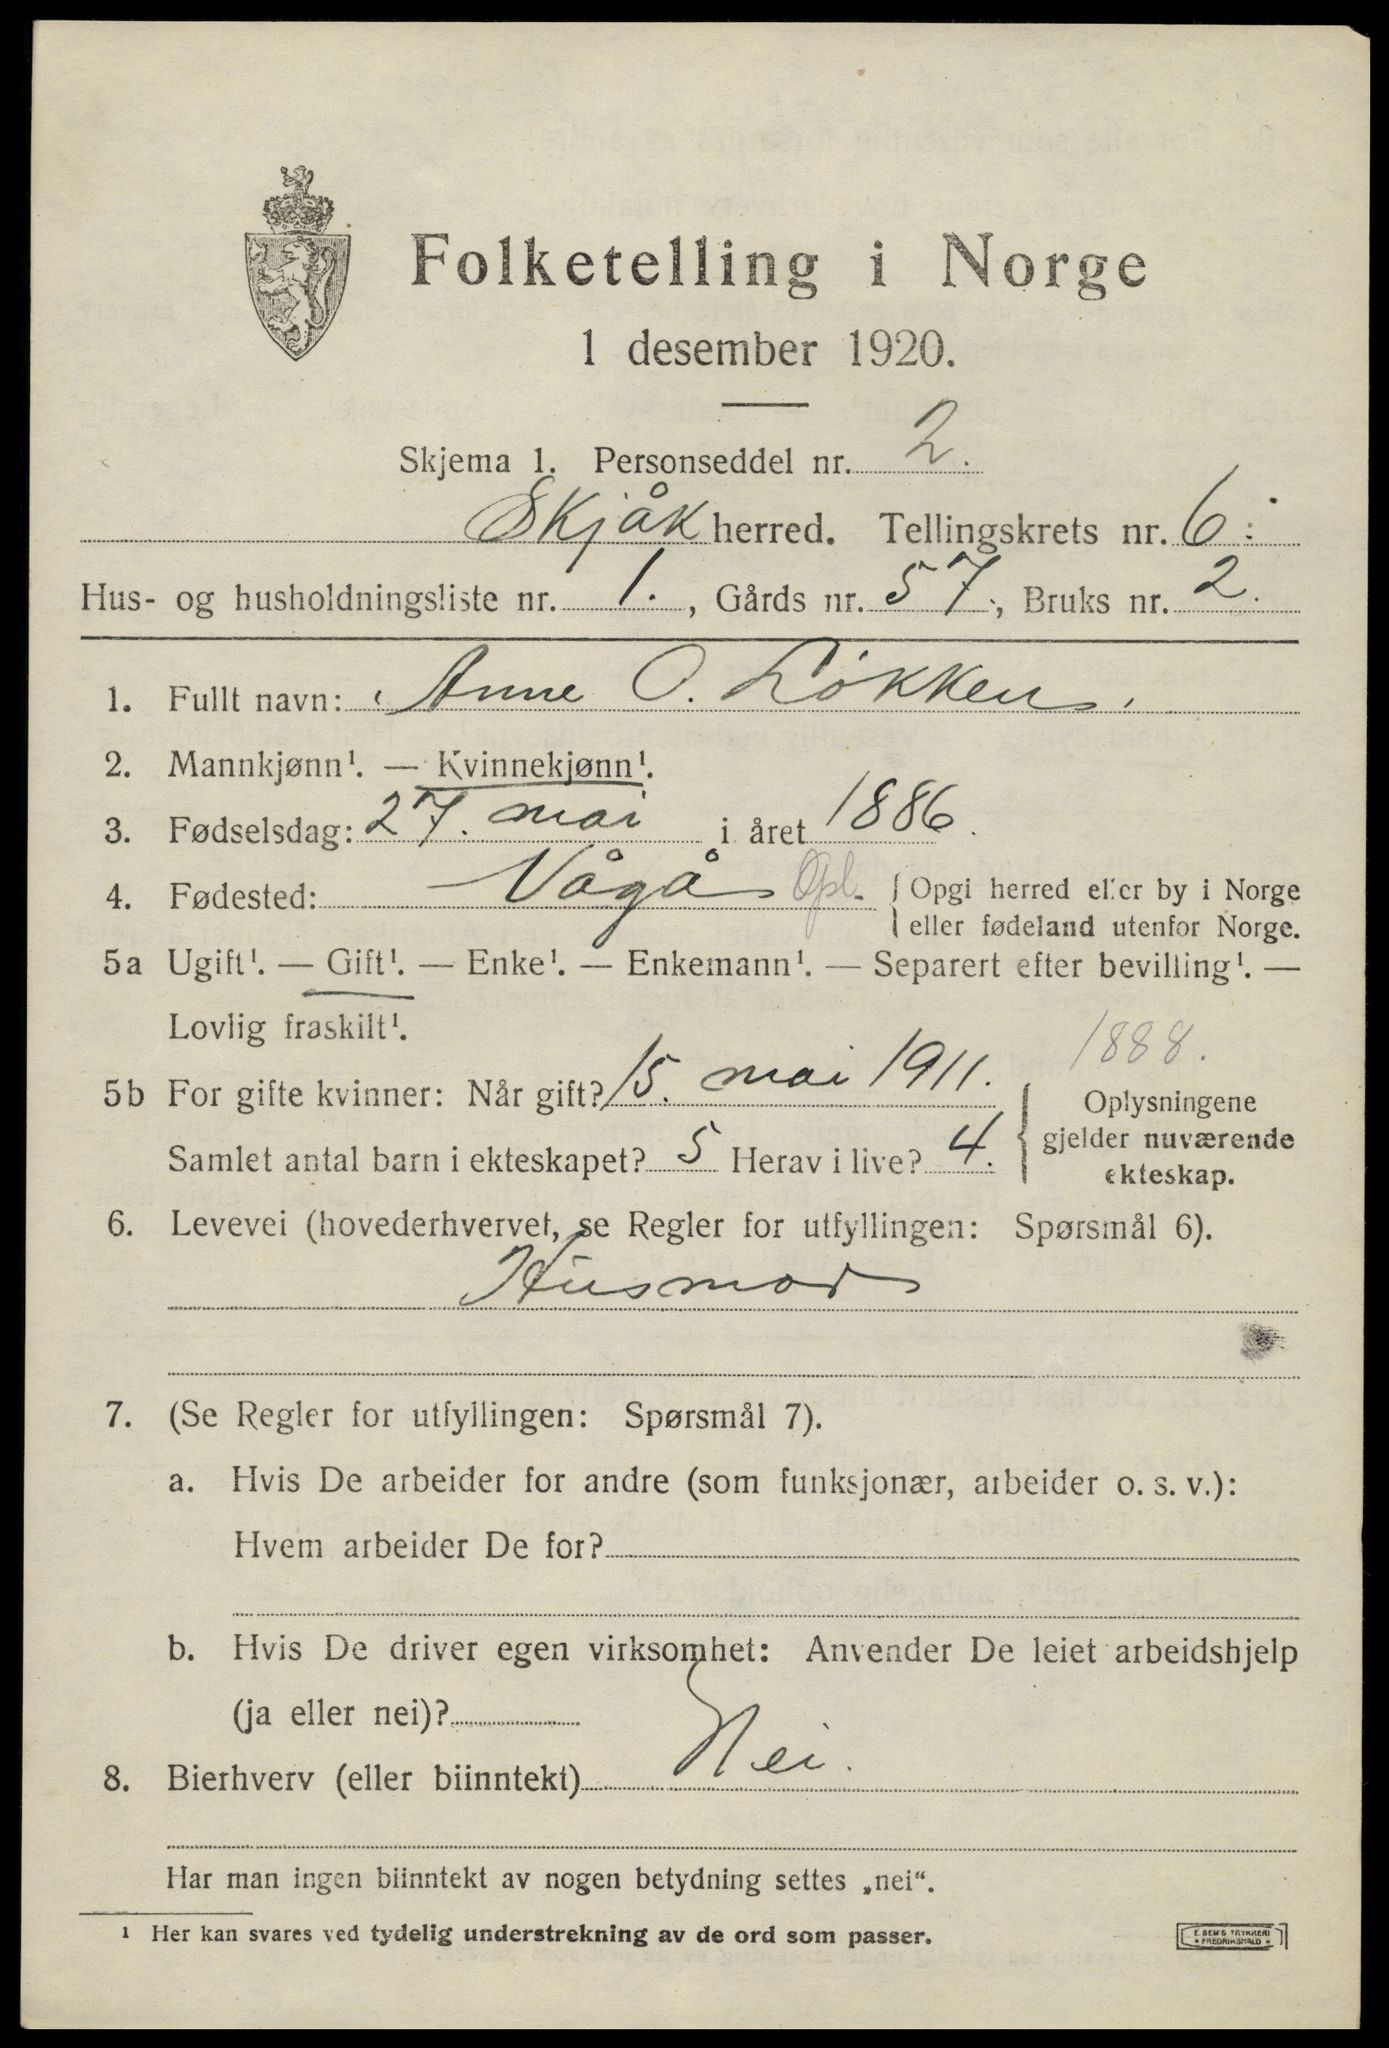 Folketelling i Norge
1 desember 1920.
Skjema 1. Personseddel nr. 2.
Skjåk herred. Tellingskrets nr. 6.
Hus- og husholdningsliste nr. 1., Gårds nr. 57., Bruks nr. 2.
1. Fullt navn: Anne O. Løkken.
2. Mannkjønn¹. — Kvinnekjønn¹.
3. Fødselsdag: 27. mai i året 1886.
4. Fødested: Vågå Opl. { Opgi herred eller by i Norge
eller fødeland utenfor Norge.
5a Ugift¹. — Gift¹. — Enke¹. — Enkemann¹. — Separert efter bevilling¹. —
Lovlig fraskilt¹.
1888.
5b For gifte kvinner: Når gift? 15. mai 1911. { Oplysningene
gjelder nuværende
Samlet antal barn i ekteskapet? 5 Herav i live? 4. ekteskap.
6. Levevei (hovederhvervet, se Regler for utfyllingen: Spørsmål 6).
Husmor
7. (Se Regler for utfyllingen: Spørsmål 7).
a. Hvis De arbeider for andre (som funksjonær, arbeider o. s. v.):
Hvem arbeider De for?
b. Hvis De driver egen virksomhet: Anvender De leiet arbeidshjelp
(ja eller nei)?
8. Bierhverv (eller biinntekt) Nei.
Har man ingen biinntekt av nogen betydning settes „nei“.
¹ Her kan svares ved tydelig understrekning av de ord som passer.
E. SEM'S TRYKKERI
FREDRIKSHALD